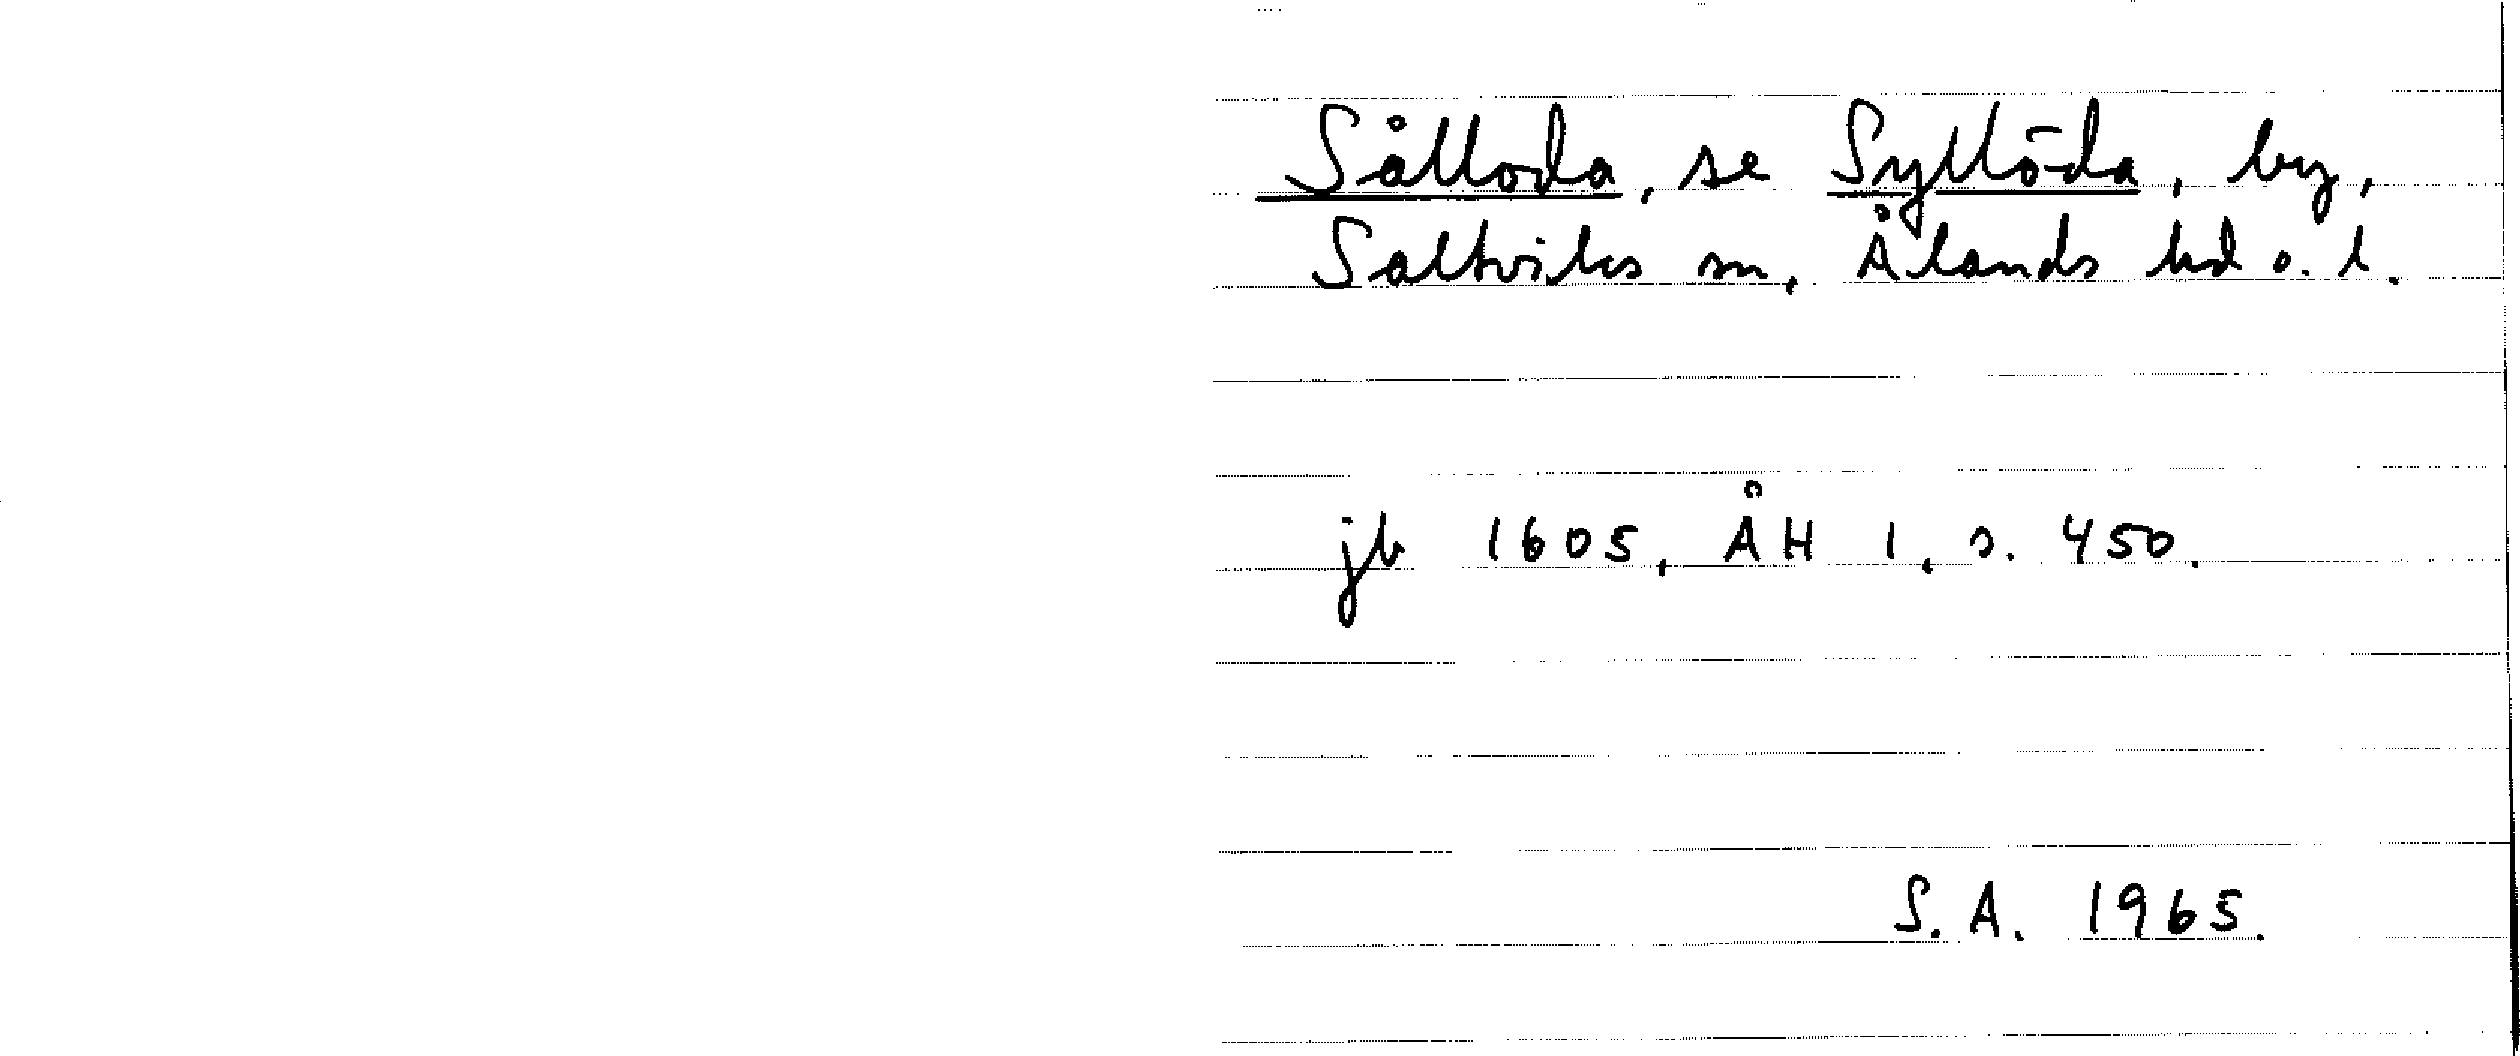 Sålloda, se Syllöda, by,
Saltviks sn, Ålands hd o. l.
jb 1605, ÅH 1, s. 450.
S. A. 1965.